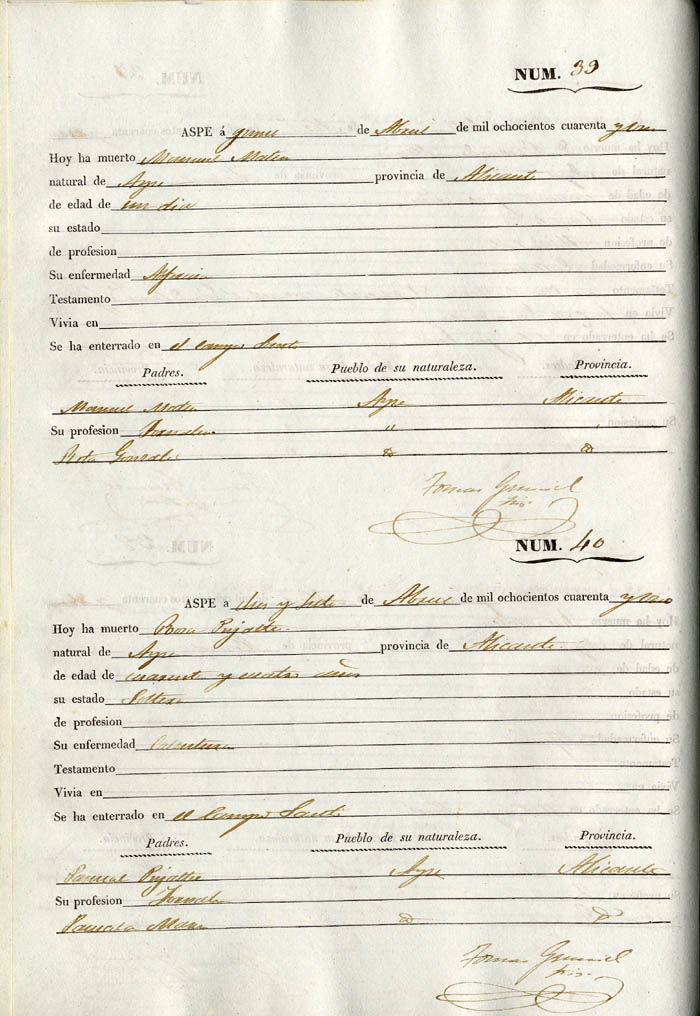 NUM. 39
ASPE á quince de Abril de mil ochocientos cuarenta y tres
Hoy ha muerto Manuel Mateo
natural de Aspe provincia de Alicante
de edad de un dia
su estado
de profesion
Su enfermedad
Testamento
Vivia en
Se ha enterrado en el Campo Santo
Padres. Pueblo de su naturaleza. Provincia.
Manuel Mateo Aspe Alicante
Su profesion Jornalero " "
Rita Gonzalez
Tomas
NUM. 40
ASPE a diez y siete de Abril de mil ochocientos cuarenta y tres
Hoy ha muerto Rosa Pujalte
natural de Aspe provincia de Alicante
de edad de cuarenta y cuatro años
su estado Soltera
de profesion
Su enfermedad Calentura
Testamento
Vivia en
Se ha enterrado en el Campo Santo
Padres. Pueblo de su naturaleza. Provincia.
Pascual Pujalte Aspe Alicante
Su profesion Jornalero
Pascuala
Tomas